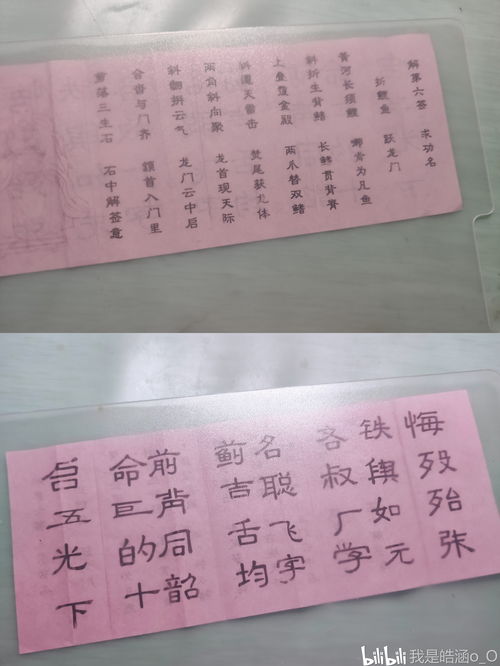 解第六签 求功名
折鲤鱼 跃龙门
黄河长须鲤 哪肯为凡鱼
斜折生背鳍 长鳍贯背脊
上叠显金殿 两爪替双鳍
斜遇天雷击 焚尾获龙体
两角斜向聚 龙首现天际
斜翻拱云气 龙门云中启
合首与门齐 颔首入门里
剪落三生石 石中解签意
悔殁殆张
铁舆如元
吝叔厂学
名聪飞字
蓟吉舌均
前背同韶
命巨的十
五光下
bilibili 我是皓涵o_O